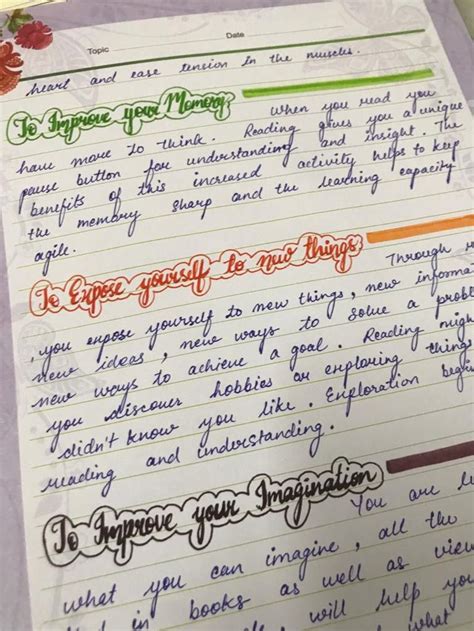 Topic
Date
heart and ease tension in the muscles.
To Improve your Memory
When you read you
have more to think. Reading gives you a unique
pause button for understanding and insight. The
benefits of this increased activity helps to keep
the memory sharp and the learning capacity
agile.
To Expose yourself to new things
Through
, you expose yourself to new things, new informa
new ideas, new ways to solve a probl
new ways to achieve a goal. Reading migh
you discover hobbies or exploring things
didn't know you like. Exploration begin
reading and understanding.
To Improve your Imagination
You are
what you can imagine, all the
in books as well as view
will help you